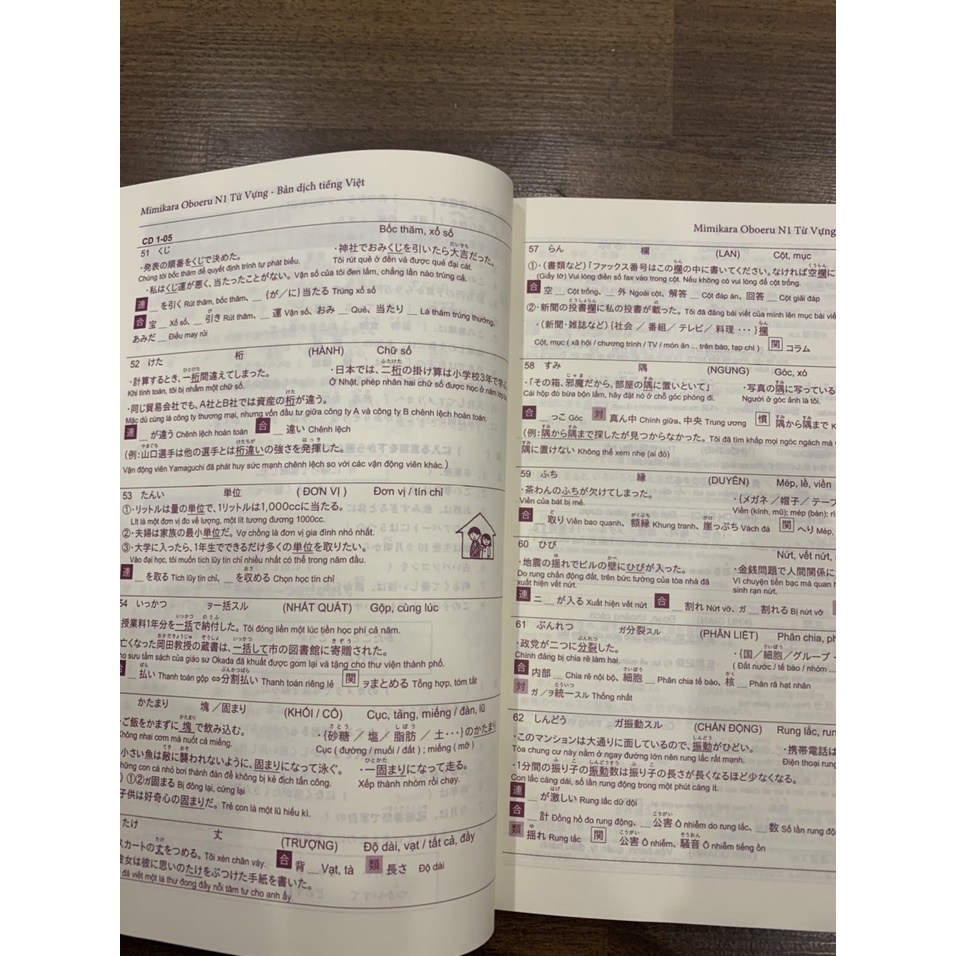 Mimikara Oboeru N1 Từ Vựng - Bản dịch tiếng Việt
CD 1-05
51 くじ Bốc thăm, xổ số
・発表の順番をくじで決めた。 ・神社でおみくじを引いたら大吉だった。
Chúng tôi bốc thăm để quyết định trình tự phát biểu. Tôi rút quẻ ở đền và được quẻ đại cát.
・私はくじ運が悪く、当たったことがない。 Vận số của tôi đen lắm, chẳng lần nào trúng cả.
連 __を引く Rút thăm, bốc thăm, __{が/に}当たる Trúng xổ số
合 宝__ Xổ số, __引き Rút thăm, __運 Vận số, おみ__ Quẻ, 当たり__ Lá thăm trúng thưởng,
あみだ__ Điều may rủi
52 けた 桁 (HÀNH) Chữ số
・計算するとき、一桁間違えてしまった。 ・日本では、二桁の掛け算は小学校3年で学
Khi tính toán, tôi bị nhầm một chữ số. Ở Nhật, phép nhân hai chữ số được học ở năm
・同じ貿易会社でも、A社とB社では資産の桁が違う。
Mặc dù cùng là công ty thương mại, nhưng vốn đầu tư giữa công ty A và công ty B chênh lệch hoàn toàn.
連 __が違う Chênh lệch hoàn toàn 合 __違い Chênh lệch
(例:山口選手は他の選手とは桁違いの強さを発揮した。
Vận động viên Yamaguchi đã phát huy sức mạnh chênh lệch so với các vận động viên khác.)
53 たんい 単位 (ĐƠN VỊ) Đơn vị / tín chỉ
①・リットルは量の単位で、1リットルは1,000ccに当たる。
Lít là một đơn vị đo về lượng, một lít tương đương 1000cc.
②・夫婦は家族の最小単位だ。 Vợ chồng là đơn vị gia đình nhỏ nhất.
③・大学に入ったら、1年生でできるだけ多くの単位を取りたい。
Vào đại học, tôi muốn tích lũy tín chỉ nhiều nhất có thể trong năm đầu.
連 __を取る Tích lũy tín chỉ, __を収める Chọn học tín chỉ
54 いっかつ ヲ一括スル (NHẤT QUÁT) Gộp, cùng lúc
授業料1年分を一括で納付した。 Tôi đóng liền một lúc tiền học phí cả năm.
亡くなった岡田教授の蔵書は、一括して市の図書館に寄贈された。
ho sưu tầm sách của giáo sư Okada đã khuất được gom lại và tặng cho thư viện thành phố.
__払い Thanh toán gộp ⇔分割払い Thanh toán riêng lẻ 関 ヲまとめる Tổng hợp, tóm tắt
かたまり 塊/固まり (KHỐI / CỐ) Cục, tảng, miếng / đàn, lũ
ご飯をかまずに塊で飲み込む。 ・{砂糖/塩/脂肪/土・・・}のかたまり
Không nhai cơm mà nuốt cả miếng. Cục (đường / muối / đất); miếng (mỡ)
小さい魚は敵に襲われないように、固まりになって泳ぐ。 ・一固まりになって走る。
hững con cá nhỏ bơi thành đàn để không bị kẻ địch tấn công. Xếp thành nhóm rồi chạy.
①②ガ固まる Bị đông lại, cứng lại
子供は好奇心の固まりだ。 Trẻ con là một lũ hiếu kì.
たけ 丈 (TRƯỢNG) Độ dài, vạt / tất cả, đầy
スカートの丈をつめる。 Tôi xén chân váy. 合 背__ Vạt, tà 類 長さ Độ dài
彼女は彼に思いのたけをぶつけた手紙を書いた。
đã viết một lá thư đong đầy nỗi tâm tư cho anh ấy.
Mimikara Oboeru N1 Từ Vựng
57 らん 欄 (LAN) Cột, mục
①・(書類など)「ファックス番号はこの欄の中に書いてください。なければ空欄に
(Giấy tờ) Vui lòng điền số fax vào trong cột. Nếu không có vui lòng để cột trống.
合 空__ Cột trống, __外 Ngoài cột, 解答__ Cột đáp án, 回答__ Cột giải đáp
②・新聞の投書欄に私の投書が載った。 Tôi đã đăng bài viết của mình lên mục bài viết
・(新聞・雑誌など){社会/番組/テレビ/料理・・・}欄
Cột, mục ( xã hội / chương trình / TV / món ăn ... trên báo, tạp chí ) 関 コラム
58 すみ 隅 (NGUNG) Góc, xó
・「その箱、邪魔だから、部屋の隅に置いといて」 ・写真の隅に写っている
Cái hộp đó bừa bộn lắm, hãy đặt nó ở chỗ góc phòng đi. Người ở góc ảnh là tôi.
合 __っこ Góc 対 真ん中 Chính giữa, 中央 Trung ương 慣 隅から隅まで
(例:隅から隅まで探したが見つからなかった。 Tôi đã tìm khắp mọi ngóc ngách mà
隅に置けない Không thể xem nhẹ (ai đó)
59 ふち 縁 (DUYÊN) Mép, lề, viền
・茶わんのふちが欠けてしまった。 ・{メガネ/帽子/テープ
Viền của bát bị mẻ. Viền (kính, mũ); mép (bàn);
合 __取り Viền bao quanh, 額縁 Khung tranh, 崖っぷち Vách đá 関 へり Mép,
60 ひび Nứt, vết nứt,
・地震の揺れでビルの壁にひびが入った。 ・金銭問題で人間関係に
Do rung chấn động đất, trên bức tường của tòa nhà đã Vì chuyện tiền bạc mà quan h
xuất hiện vết nứt. sinh rạn nứt.
連 ニ__が入る Xuất hiện vết nứt 合 __割れ Nứt vỡ, ガ__割れる Bị nứt vỡ
61 ぶんれつ ガ分裂スル (PHÂN LIỆT) Phân chia, ph
・政党が二つに分裂した。 ・{国/細胞/グループ・
Chính đảng bị chia rẽ làm hai. ( Đất nước / tế bào / nhóm
合 内部__ Chia rẽ nội bộ, 細胞__ Phân chia tế bào, 核__ Phân rã hạt nhân
対 ガ/ヲ統一スル Thống nhất
62 しんどう ガ振動スル (CHẤN ĐỘNG) Rung lắc, run
・このマンションは大通りに面しているので、振動がひどい。 ・携帯電話は
Tòa chung cư này nằm ở ngay đường lớn nên rung lắc rất mạnh. Điện thoại rung
・1分間の振り子の振動数は振り子の長さが長くなるほど少なくなる。
Con lắc càng dài, số lần rung động trong một phút càng ít.
連 __が激しい Rung lắc dữ dội
合 __計 Đồng hồ đo rung động, __公害 Ô nhiễm do rung lắc, __数 Số lần rung động
類 揺れ Rung lắc 関 公害 Ô nhiễm, 騒音 Ô nhiễm tiếng ồn